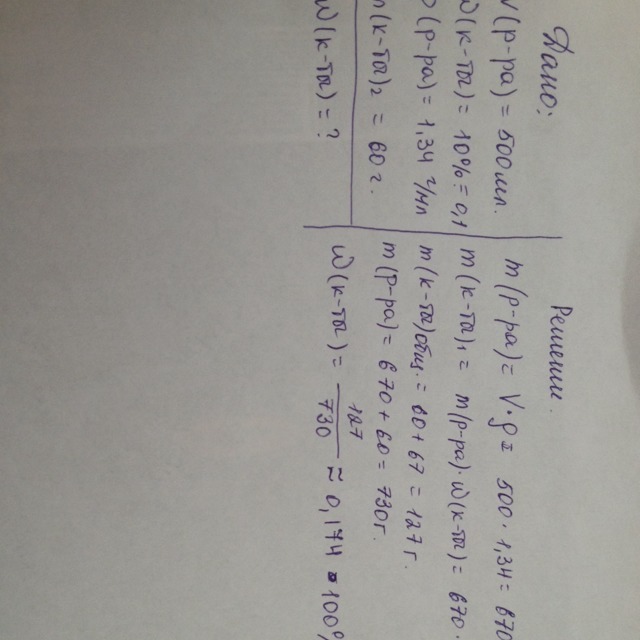 Дано:
V(р-ра) = 500мл.
W(к-та) = 10% = 0,1
(р-ра) = 1,34 г/мл
m(к-та)₂ = 60 г.
W(к-та) = ?
Решение.
m(р-ра) = V·ρ = 500·1,34 = 670
m(к-та)₁ = m(р-ра)·W(к-та) = 670
m(к-та)общ = 60 + 67 = 127 г.
m(р-ра) = 670 + 60 = 730г.
W(к-та) = 127/730 ≈ 0,174 · 100%